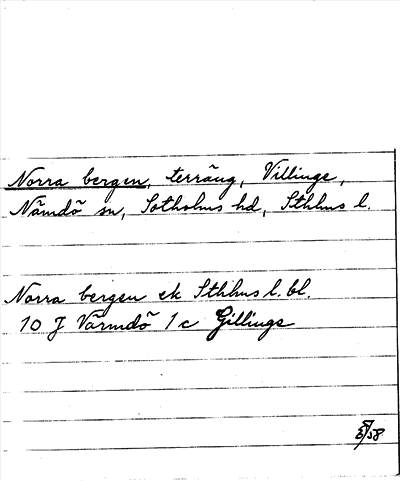 Norra bergen, terräng, Villinge,
Nämdö sn, Sotholms hd, Sthlms l.
Norra bergen ek Sthlms l. bl.
10 J Värmdö 1 c Gillinge